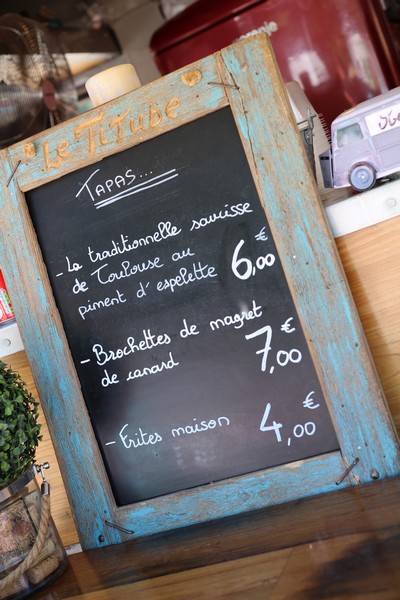 Le TiTube
TAPAS...
- La traditionnelle saucisse
de Toulouse au
piment d'espelette 6,00 €
- Brochettes de magret
de canard 7,00 €
- Frites maison 4,00 €